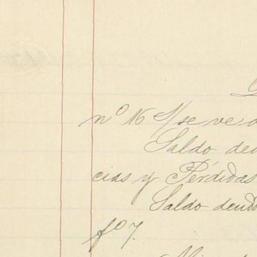 nº 16 s/ se ve
Saldo deu
cias y Pérdidas
Saldo deudo
fº 7.